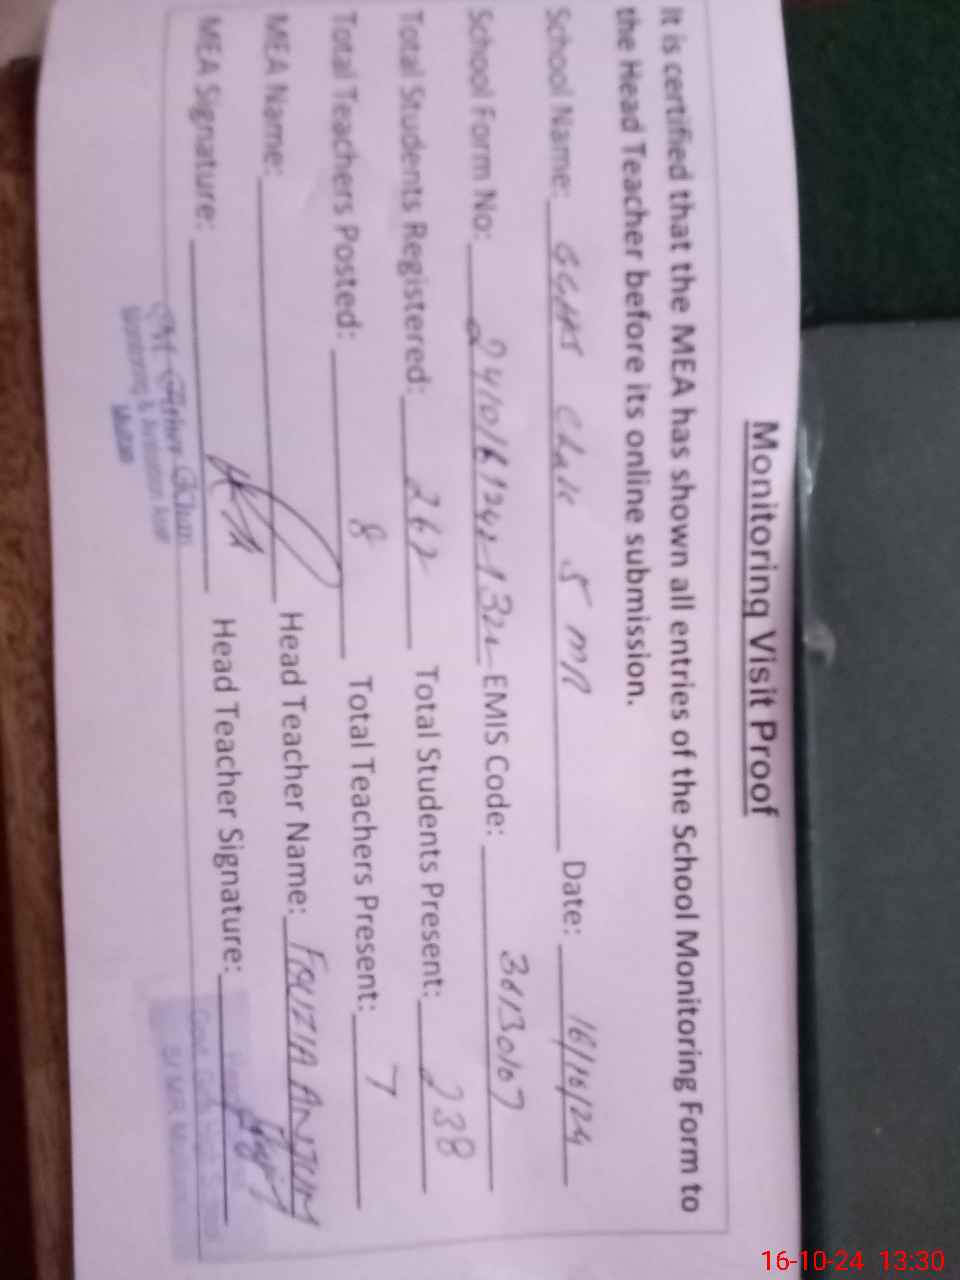 Monitoring Visit Proof
It is certified that the MEA has shown all entries of the School Monitoring Form to
the Head Teacher before its online submission.
School Name: GGHS Chak 5 MR Date: 16/10/24
School Form No: EMIS Code: 36130107
Total Students Registered: 262 Total Students Present: 238
Total Teachers Posted: 8 Total Teachers Present: 7
MEA Name: Head Teacher Name: FOUZIA ANJUM
MEA Signature: Head Teacher Signature:
Monitoring & Evaluation Asstt
Multan
5/MR Multan
16-10-24 13:30